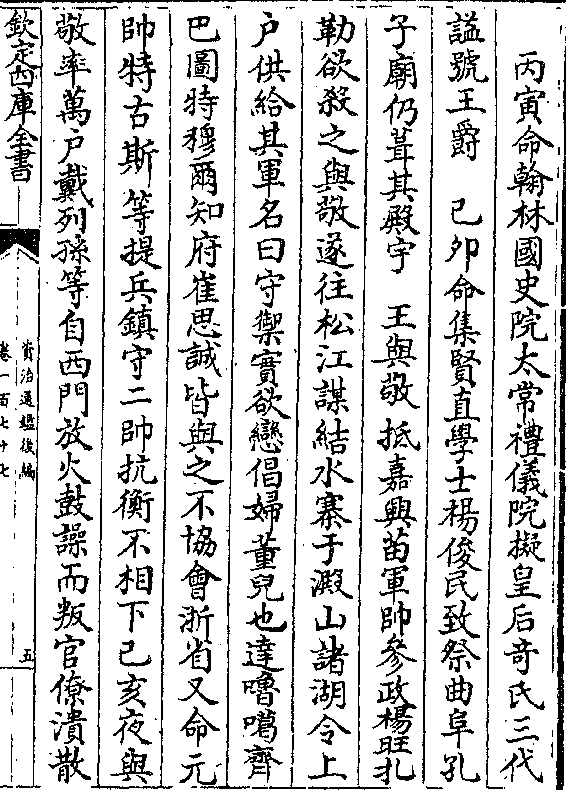 丙寅命翰林國史院太常禮儀院擬皇后奇氏三代
謚號王爵　己卯命集賢直學士楊俊民致祭曲阜孔
子廟仍葺其殿宇　王與敬抵嘉興苗軍帥參政楊旺扎
勒欲殺之與敬遂往松江謀結水寨于澱山諸湖令上
户供給其軍名曰守禦實欲戀倡婦董兒也達嚕噶齊
巴圖特穆爾知府崔思誠皆與之不協會浙省又命元
帥特古斯等提兵鎮守二帥抗衡不相下己亥夜與
敬率萬户戴列孫等自西門放火鼓譟而叛官僚潰散
欽定四庫全書
資治通鑑後編
卷一百七十七
五